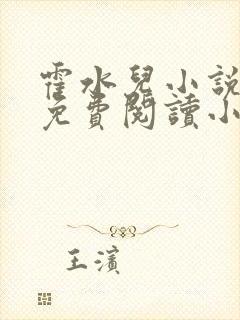 霍水兒小説
免費閱讀小
王濱